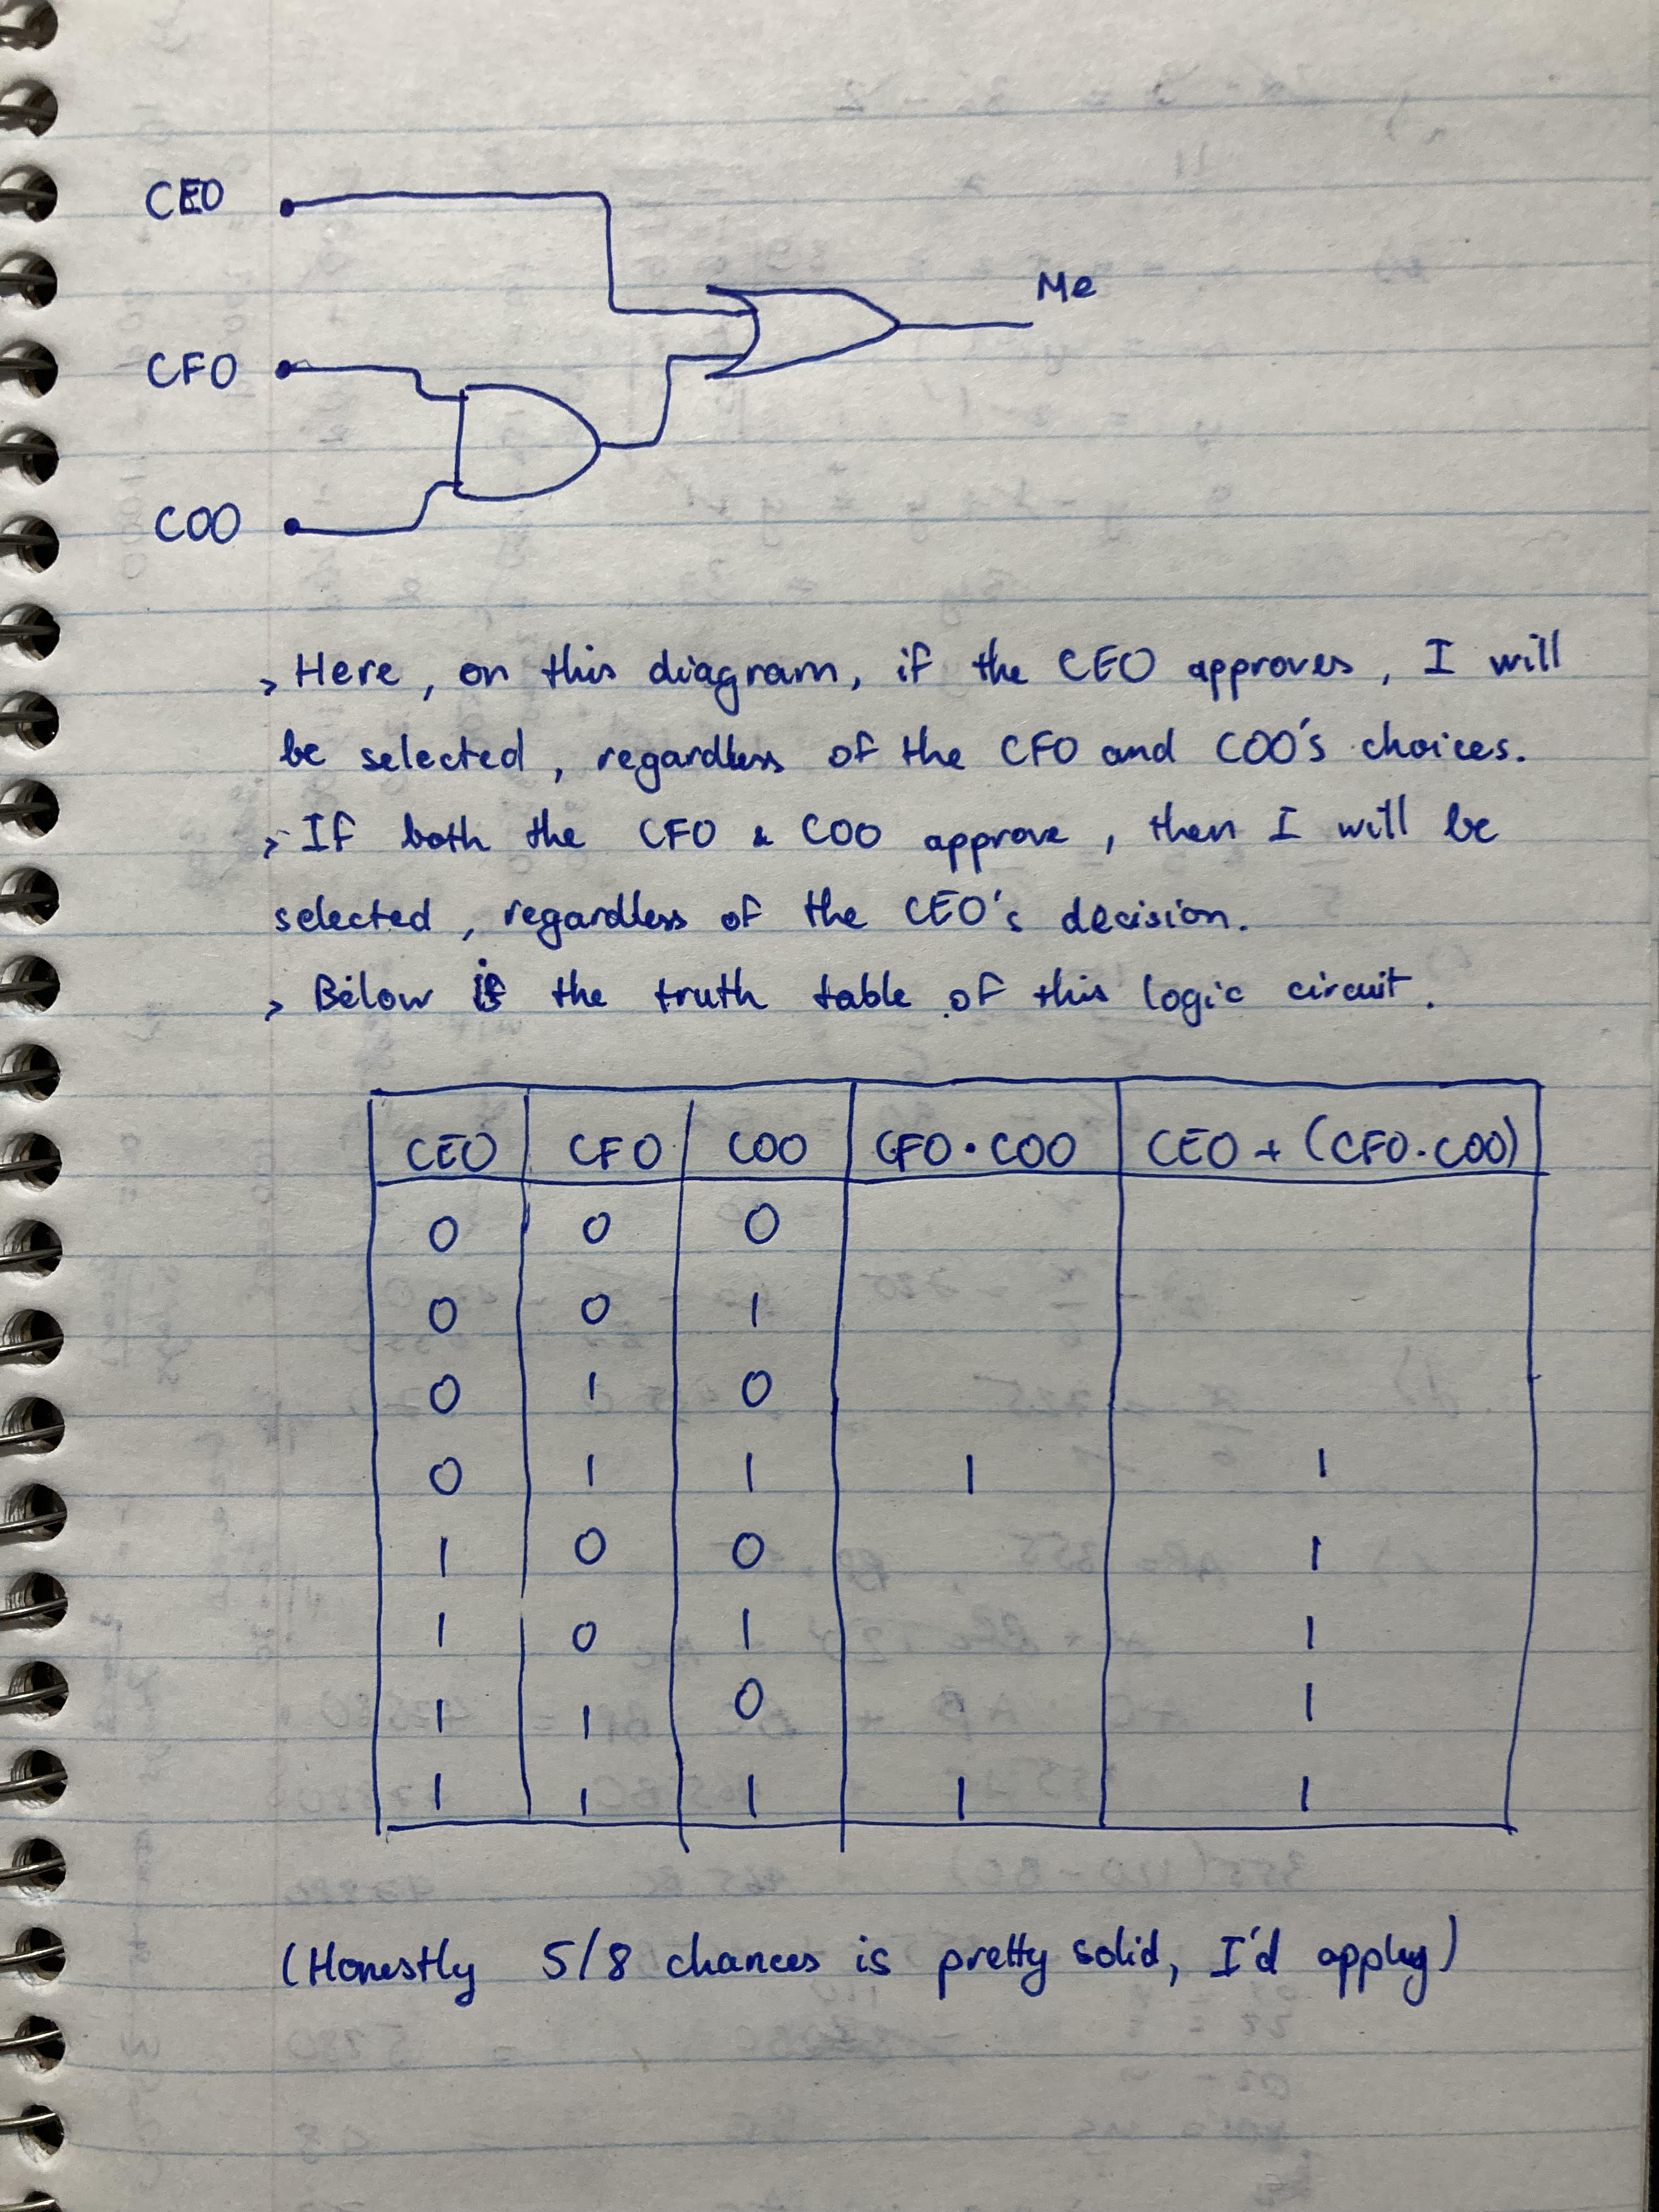 CEO
Me
CFO
COO
> Here, on this diagram, if the CEO approves, I will
be selected, regardless of the CFO and COO's choices.
> If both the CFO & COO approve, then I will be
selected, regardless of the CEO's decision.
> Below is the truth table of this logic circuit.
CEO CFO COO CFO·COO CEO + (CFO·COO)
0 0 0
0 0 1
0 1 0
0 1 1 1 1
1 0 0 1
1 0 1 1
1 1 0 1
1 1 1 1 1
(Honestly 5/8 chances is pretty solid, I'd apply)